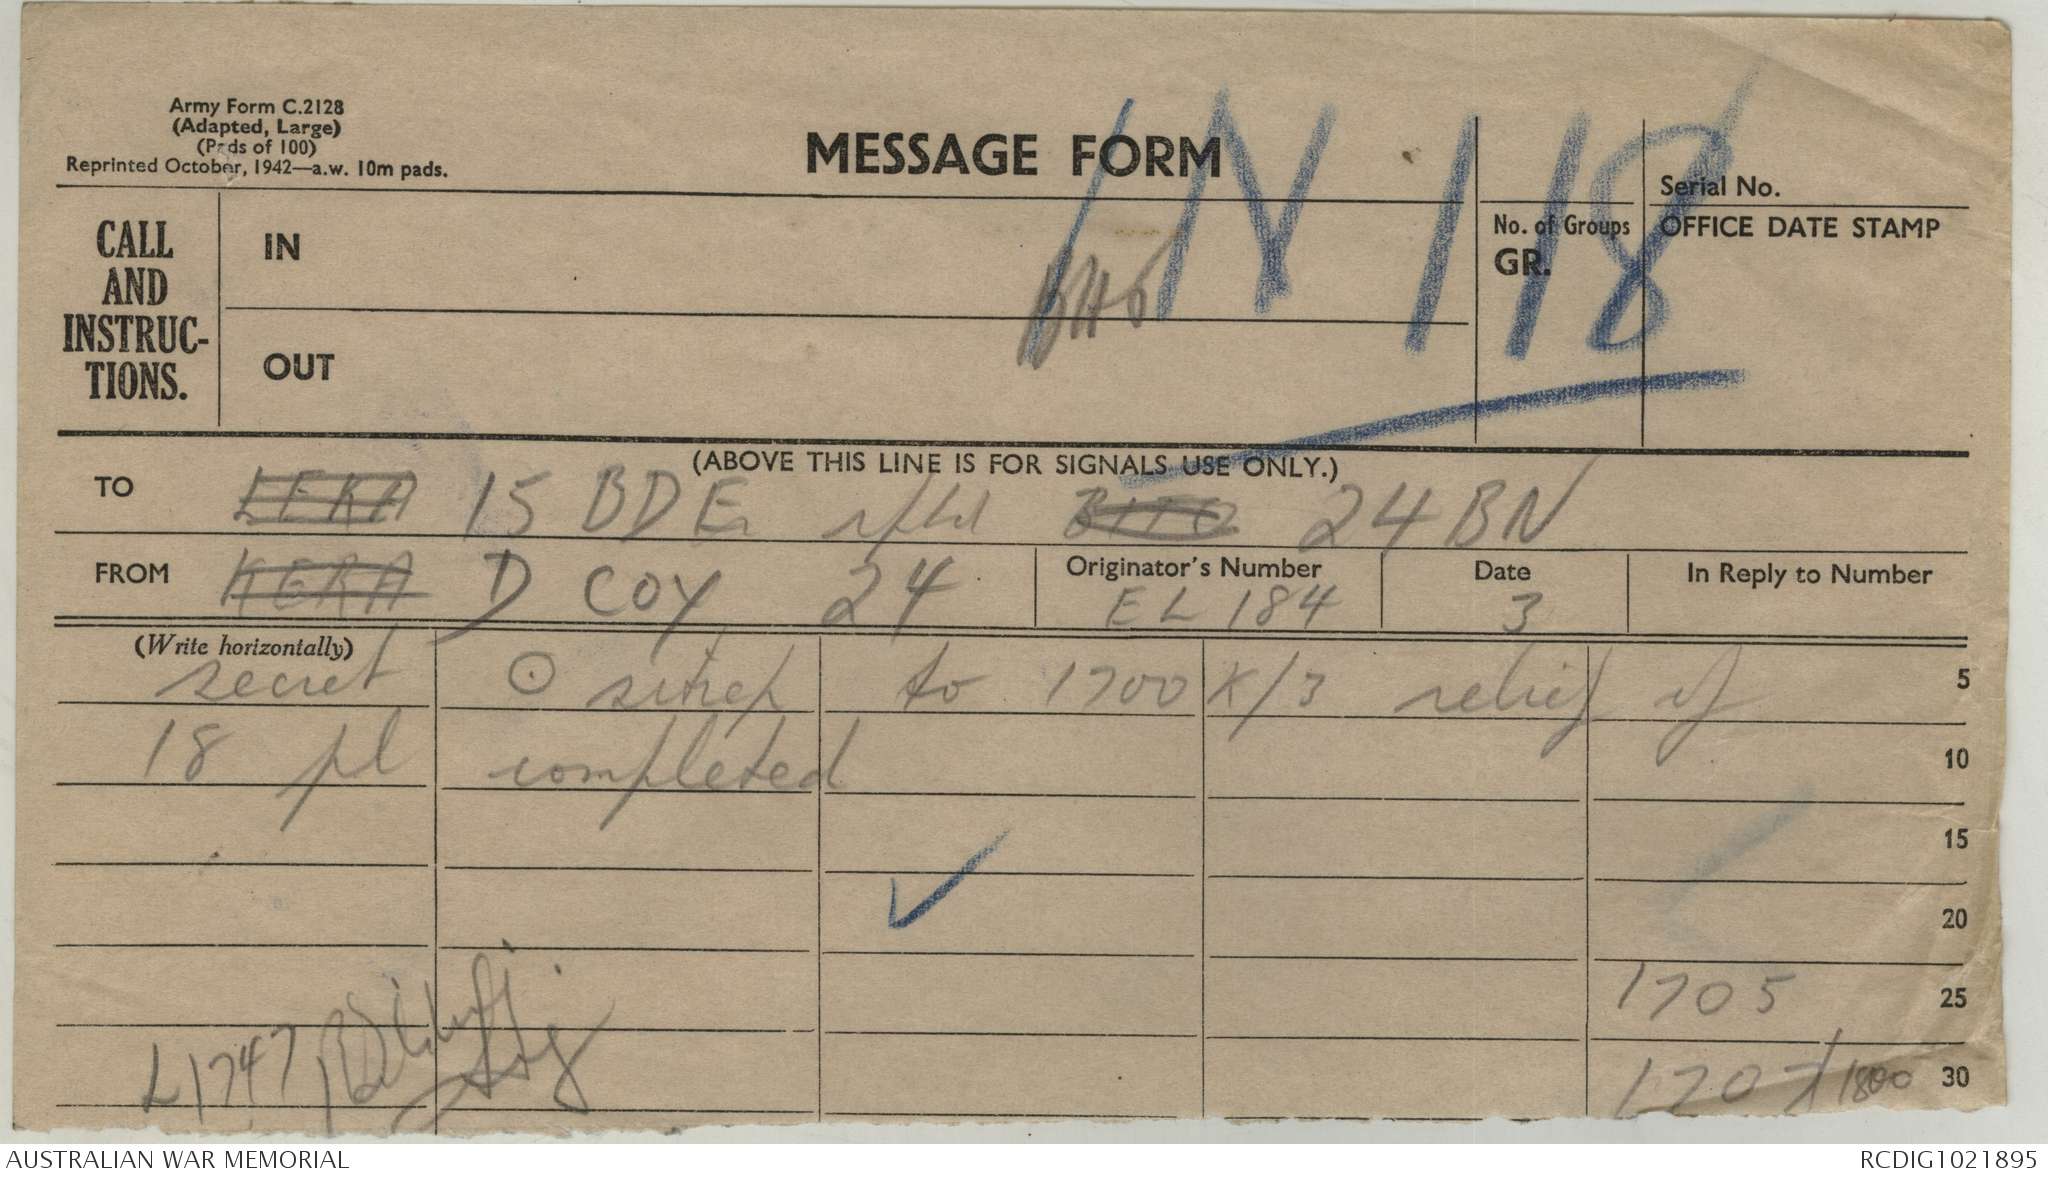 Army Form C.2128
(Adapted, Large)
(Pads of 100)
Reprinted October, 1942—a.w. 10m pads.
MESSAGE FORM
IN 118
Serial No.
CALL AND INSTRUC-TIONS.
IN
OUT
No. of Groups
GR.
OFFICE DATE STAMP
(ABOVE THIS LINE IS FOR SIGNALS USE ONLY.)
TO LEKA 15 BDE rptd BITO 24 BN
FROM KERA D COY 24
Originator's Number EL 184
Date 3
In Reply to Number
(Write horizontally)
secret ⊙ sitrep to 1700 K/3 relief of 5
18 pl completed 10
15
20
1705 25
L1747
1707/1800 30
AUSTRALIAN WAR MEMORIAL
RCDIG1021895